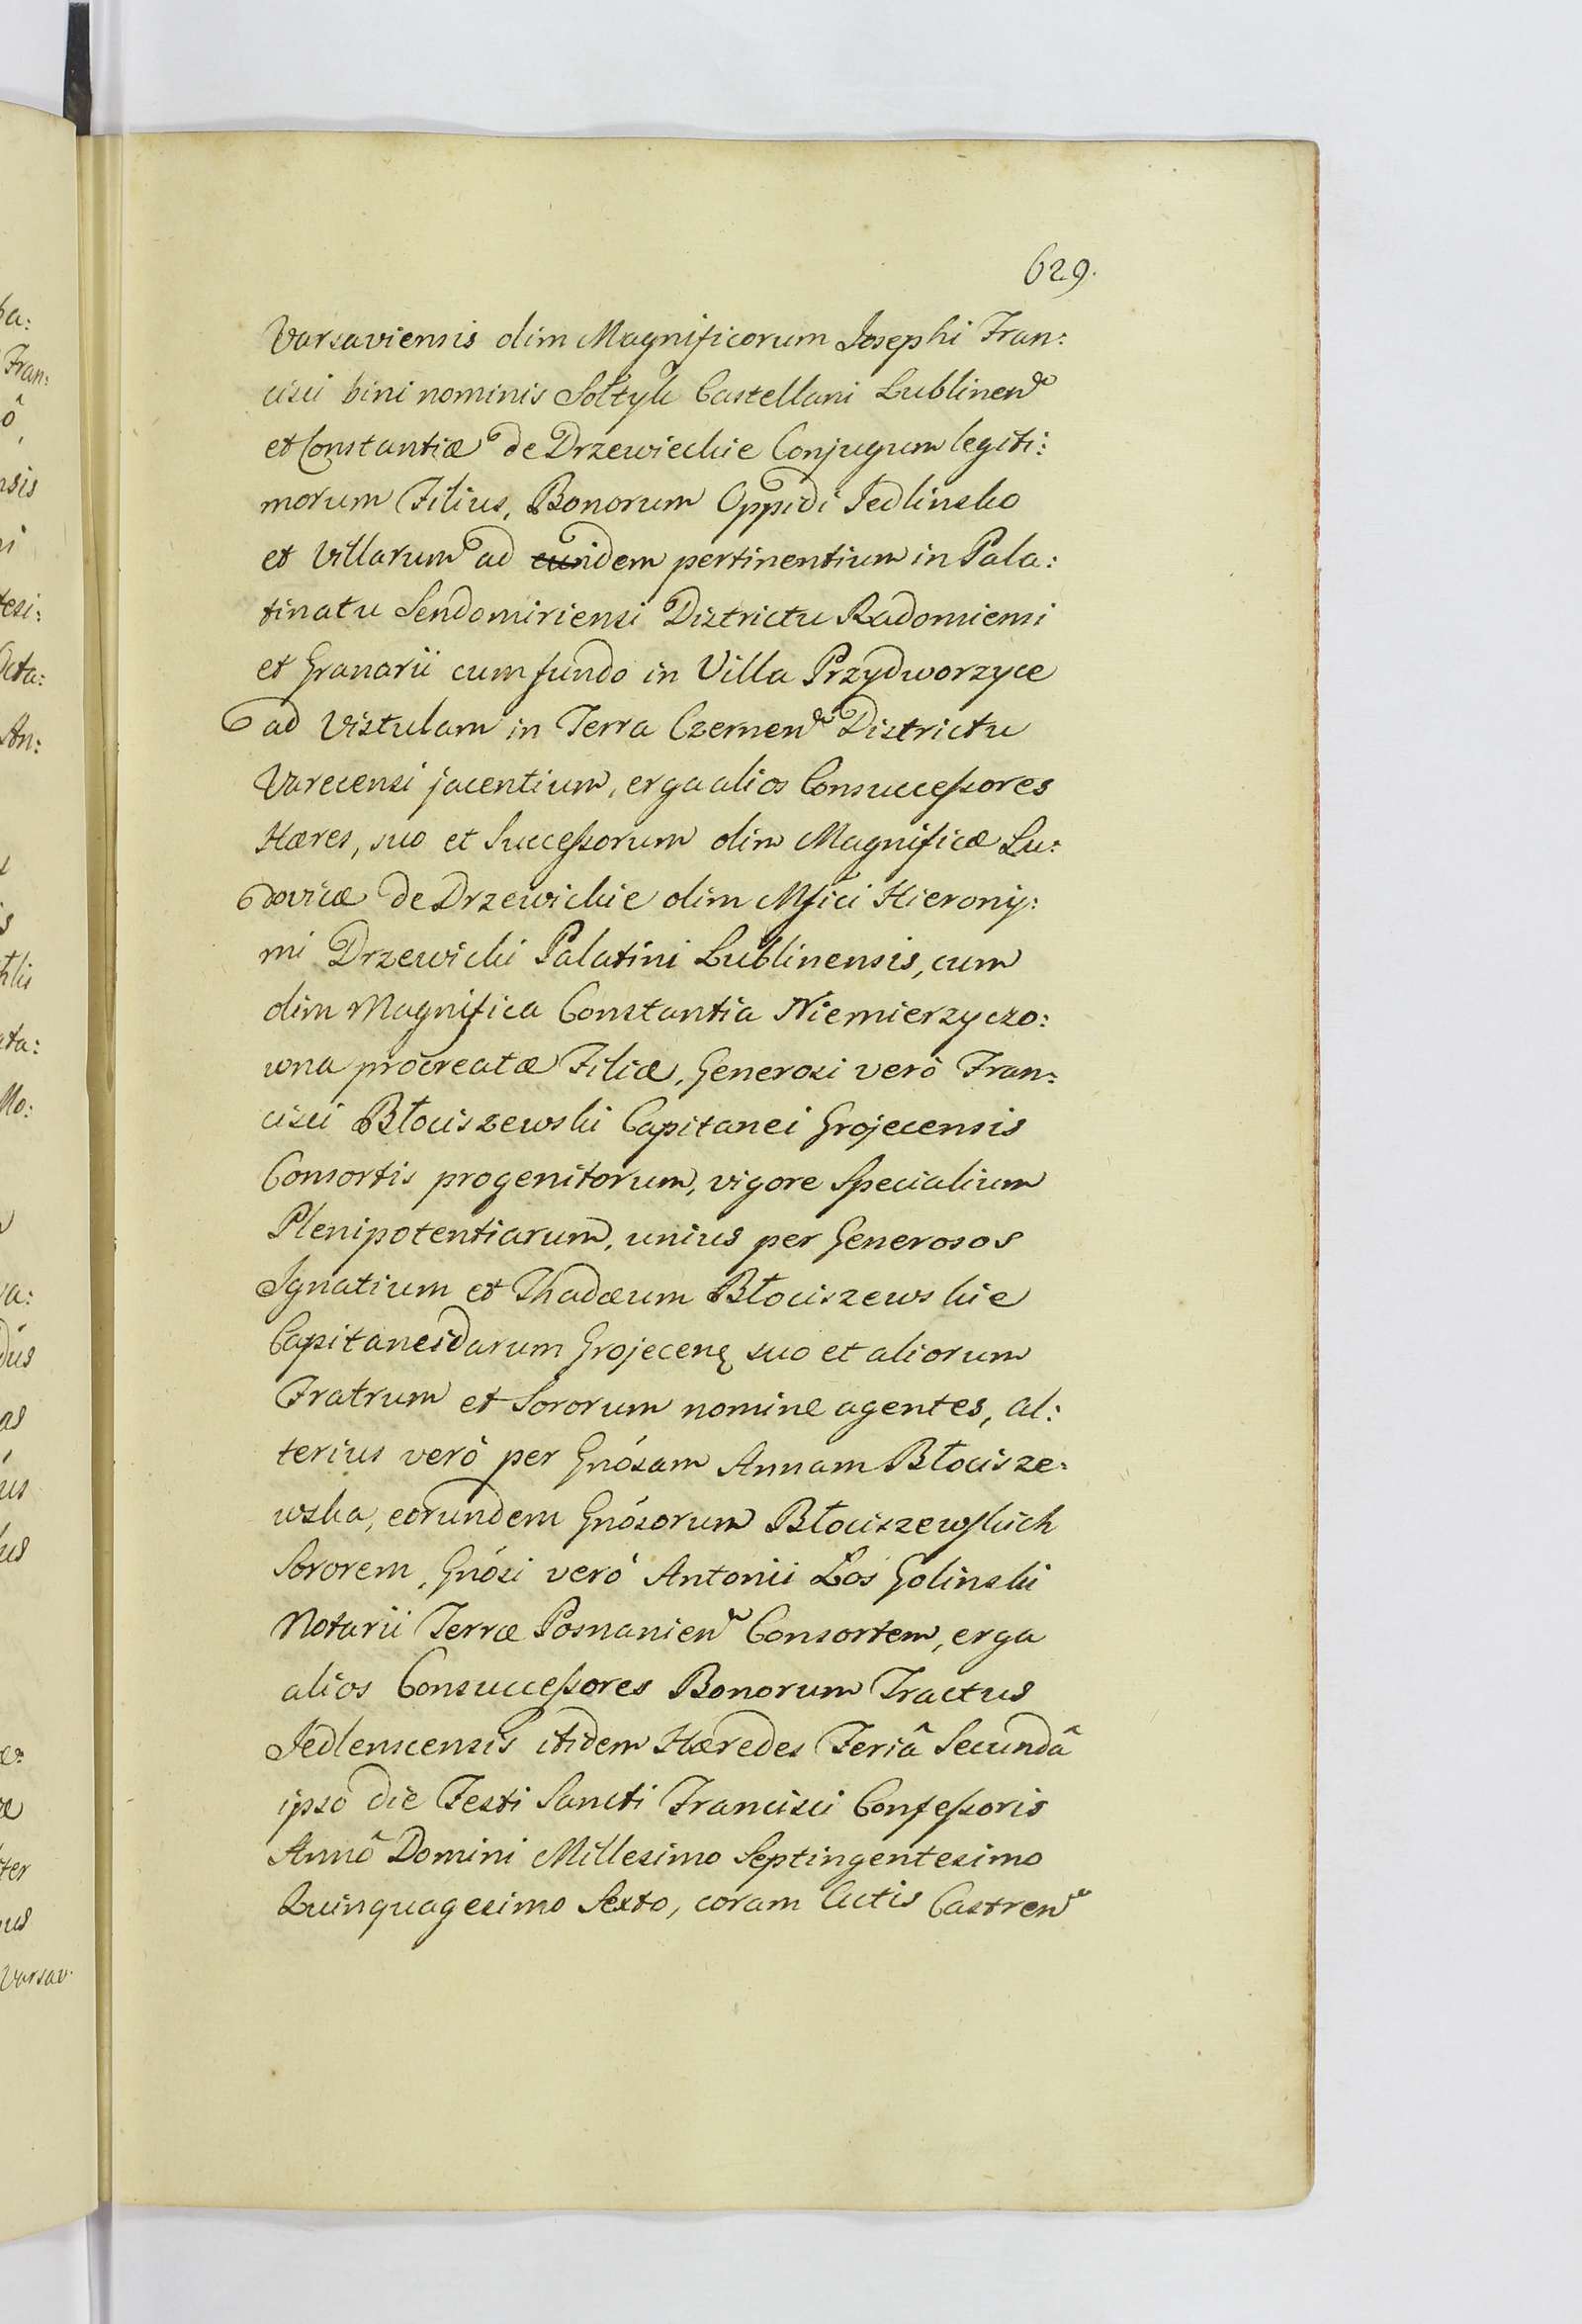 629.
Varsaviensis olim Magnificorum Josephi Fran:
cisci bini nominis Sołtyk Castellani Lublinen
et Constantiæ de Drzewieckie Conjugum legiti:
morum Filius, Bonorum Oppidi Jedlinsko
et Villarum ad eundem pertinentium in Pala:
tinatu Sendomiriensi Districtu Radomiensi
et Granarii cum fundo in Villa Przydworzyce
ad Vistulam in Terra Czernen Districtu
Varecensi jacentium, erga alios Consuccessores
Hæres, suo et Successorum olim Magnificæ Lu:
dovicæ de Drzewickie olim Mfici Hierony:
mi Drzewicki Palatini Lublinensis, cum
olim Magnifica Constantia Niemierzyczo:
wna procreatæ Filiæ, Generosi verò Fran:
cisci Błociszewski Capitanei Grojecensis
Consortis progenitorum, vigore Specialium
Plenipotentiarum, unius per Generosos
Ignatium et Thadæum Błociszewskie
Capitaneidarum Grojecen suo et aliorum
Fratrum et Sororum nomine agentes, al:
terius verò per Gnósam Annam Błocisze:
wska, eorundem Gnósorum Błociszewskich
Sororem, Gnósi verò Antonii Łos Golinski
Notarii Terræ Posnanien Consortem, erga
alios Consuccessores Bonorum Tractus
Jedlenscensis itidem Hæredes Feriâ Secundâ
ipso die Festi Sancti Francisci Confessoris
Annô Domini Millesimo Septingentesimo
Quinquagesimo Sexto, coram Actis Castren
ba:
Fran:
ô,
nsis
ni
tesi:
Octa:
An:
ata:
Mo:
va:
dus
as
us
ter
Varsav.